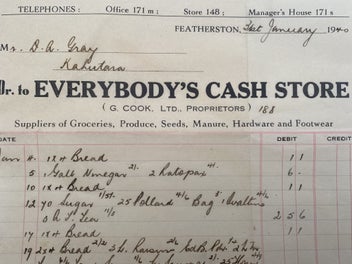 TELEPHONES: Office 171 m; Store 148; Manager's House 171 s
FEATHERSTON, 31st January 1940
Mr. D. A. Gray
Kahutara
Dr. to EVERYBODY'S CASH STORE
(G. COOK. LTD., PROPRIETORS) 188
Suppliers of Groceries, Produce, Seeds, Manure, Hardware and Footwear
DATE DEBIT CREDIT
Jan 4. 1x4 Bread 11
5 1 Galls Vinegar 2/- 2 Ratopax 4/- 6 -
10 1x4 Bread 11
12 70 Sugar 25 Pollard 4/6 Bag 5 Ovaltine 4/6
5 Tea 2 5 6
17 1x4 Bread 11
19 2x4 Bread 3 lb. Raisins